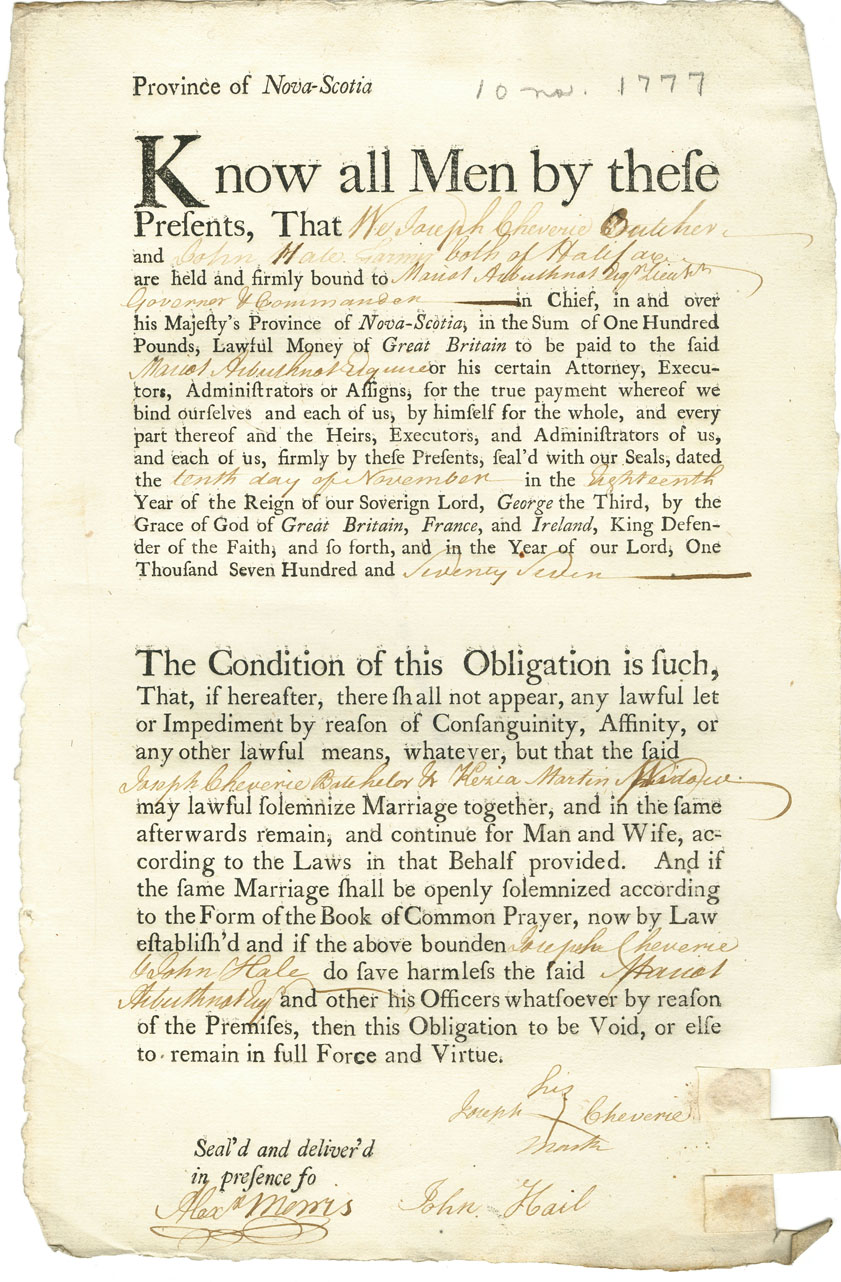 Province of Nova-Scotia
10 nov. 1777
Know all Men by theſe
Preſents, That We Joseph Cheverie Butcher
and John Hale both of Halifax
are held and firmly bound to Mariot Arbuthnot Esqr. Lieut.
Governor & Commander in Chief, in and over
his Majeſty's Province of Nova-Scotia, in the Sum of One Hundred
Pounds, Lawful Money of Great Britain to be paid to the ſaid
Mariot Arbuthnot Esquire or his certain Attorney, Execu-
tors, Adminiſtrators or Aſſigns, for the true payment whereof we
bind ourſelves and each of us, by himſelf for the whole, and every
part thereof and the Heirs, Executors, and Adminiſtrators of us,
and each of us, firmly by theſe Preſents, ſeal'd with our Seals, dated
the tenth day of November in the Eighteenth
Year of the Reign of our Soverign Lord, George the Third, by the
Grace of God of Great Britain, France, and Ireland, King Defen-
der of the Faith, and ſo forth, and in the Year of our Lord, One
Thouſand Seven Hundred and Seventy Seven
The Condition of this Obligation is ſuch,
That, if hereafter, there ſhall not appear, any lawful let
or Impediment by reaſon of Conſanguinity, Affinity, or
any other lawful means, whatever, but that the ſaid
Joseph Cheverie Batchelor & Kezia Martin Widow
may lawful ſolemnize Marriage together, and in the ſame
afterwards remain, and continue for Man and Wife, ac-
cording to the Laws in that Behalf provided. And if
the ſame Marriage ſhall be openly ſolemnized according
to the Form of the Book of Common Prayer, now by Law
eſtabliſh'd and if the above bounden Joseph Cheverie
& John Hale do ſave harmleſs the ſaid Mariot
Arbuthnot Esqr and other his Officers whatſoever by reaſon
of the Premiſes, then this Obligation to be Void, or elſe
to remain in full Force and Virtue.
his
Joseph Cheverie
mark
Seal'd and deliver'd
in preſence fo
Alexr Morris
John Hail